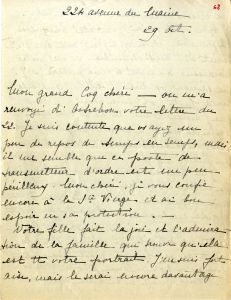 68
224 avenue du Maine
29 Oct.
Mon grand Coq chéri — on m'a
renvoyé d' votre lettre du
22. Je suis contente que vous ayez un
peu de repos de temps en temps, mais
il me semble que ce poste de
transmetteur d'ordre est un peu
périlleux. Mon chéri, je vous confie
encore à la Ste Vierge et ai bon
espoir en sa protection. —
Votre fille fait la joie et l'admira
tion de la famille qui trouve qu'elle
est tt votre portrait. J'en suis fort
aise, mais le serai encore davantage